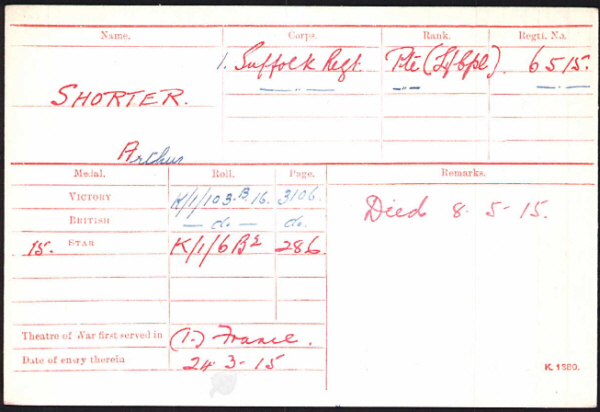 Name. Corps. Rank. Regtl. No.
1. Suffolk Regt. Pte (L/Cpl). 6515.
SHORTER. — " — — " — — " —
Arthur
Medal. Roll. Page. Remarks.
VICTORY K/1/103.B.16. 3106.
BRITISH — do. — do. Died 8-5-15.
15. STAR K/1/6 B2 286
Theatre of War first served in (1.) France.
Date of entry therein 24 3-15
K. 1380.